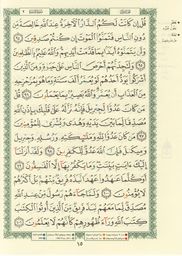 قُلْ إِن كَانَتْ لَكُمُ ٱلدَّارُ ٱلْءَاخِرَةُ عِندَ ٱللَّهِ خَالِصَةً مِّن
دُونِ ٱلنَّاسِ فَتَمَنَّوُا۟ ٱلْمَوْتَ إِن كُنتُمْ صَٰدِقِينَ ٩٤
وَلَن يَتَمَنَّوْهُ أَبَدًۢا بِمَا قَدَّمَتْ أَيْدِيهِمْ وَٱللَّهُ عَلِيمٌۢ بِٱلظَّٰلِمِينَ
٩٥ وَلَتَجِدَنَّهُمْ أَحْرَصَ ٱلنَّاسِ عَلَىٰ حَيَوٰةٍ وَمِنَ ٱلَّذِينَ
أَشْرَكُوا۟ يَوَدُّ أَحَدُهُمْ لَوْ يُعَمَّرُ أَلْفَ سَنَةٍ وَمَا هُوَ بِمُزَحْزِحِهِۦ
مِنَ ٱلْعَذَابِ أَن يُعَمَّرَ وَٱللَّهُ بَصِيرٌۢ بِمَا يَعْمَلُونَ ٩٦ قُلْ
مَن كَانَ عَدُوًّا لِّجِبْرِيلَ فَإِنَّهُۥ نَزَّلَهُۥ عَلَىٰ قَلْبِكَ بِإِذْنِ ٱللَّهِ
مُصَدِّقًا لِّمَا بَيْنَ يَدَيْهِ وَهُدًى وَبُشْرَىٰ لِلْمُؤْمِنِينَ
٩٧ مَن كَانَ عَدُوًّا لِّلَّهِ وَمَلَٰٓئِكَتِهِۦ وَرُسُلِهِۦ وَجِبْرِيلَ
وَمِيكَىٰلَ فَإِنَّ ٱللَّهَ عَدُوٌّ لِّلْكَٰفِرِينَ ٩٨ وَلَقَدْ أَنزَلْنَآ
إِلَيْكَ ءَايَٰتٍۭ بَيِّنَٰتٍ وَمَا يَكْفُرُ بِهَآ إِلَّا ٱلْفَٰسِقُونَ ٩٩
أَوَكُلَّمَا عَٰهَدُوا۟ عَهْدًا نَّبَذَهُۥ فَرِيقٌ مِّنْهُم بَلْ أَكْثَرُهُمْ
لَا يُؤْمِنُونَ ١٠٠ وَلَمَّا جَآءَهُمْ رَسُولٌ مِّنْ عِندِ ٱللَّهِ
مُصَدِّقٌ لِّمَا مَعَهُمْ نَبَذَ فَرِيقٌ مِّنَ ٱلَّذِينَ أُوتُوا۟ ٱلْكِتَٰبَ
كِتَٰبَ ٱللَّهِ وَرَآءَ ظُهُورِهِمْ كَأَنَّهُمْ لَا يَعْلَمُونَ ١٠١
١٥